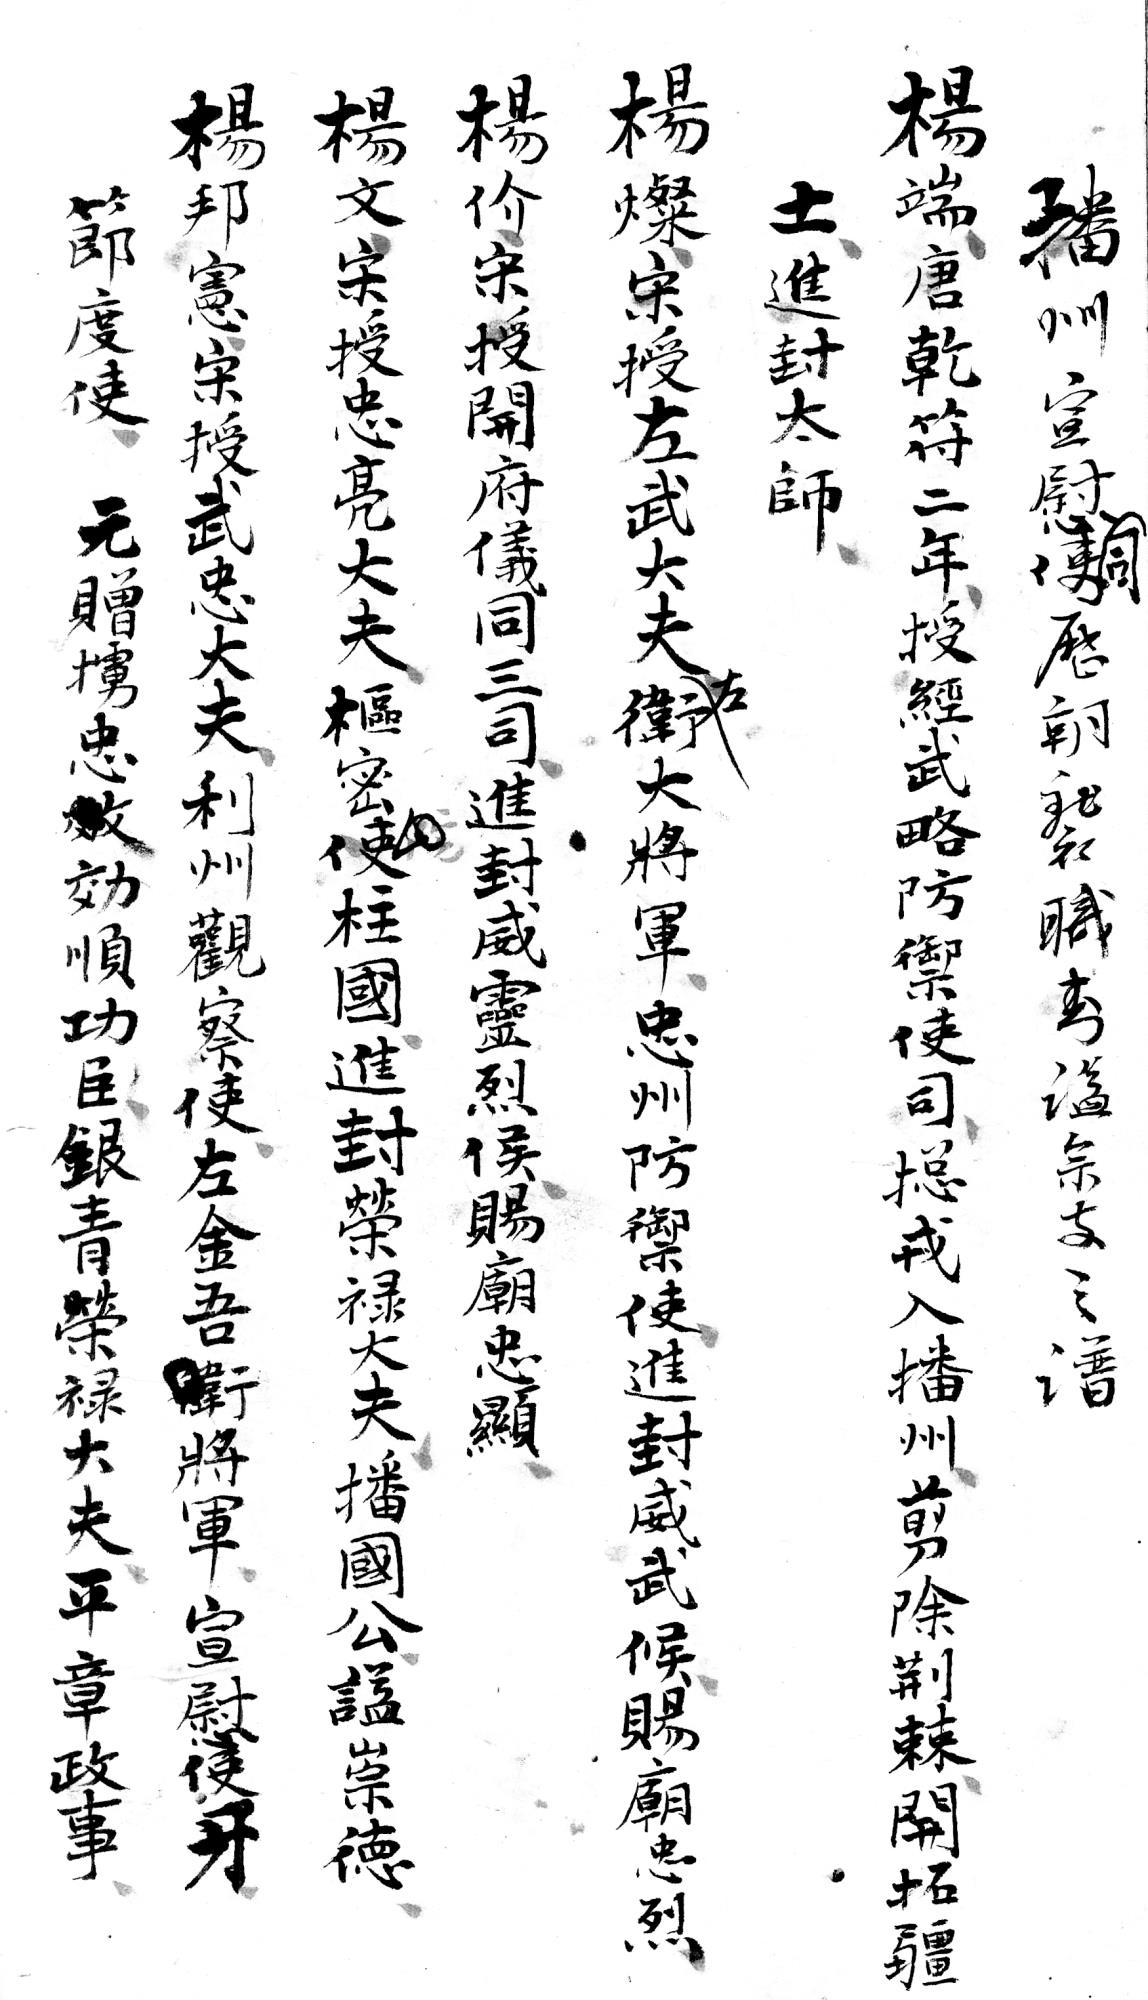 播州宣慰使司歷朝襲職考謚宗支之譜
楊端唐乾符二年授經武略防禦使司摠戎入播州剪除荆棘開拓疆
土進封太師
楊燦宋授左武大夫左衛大將軍忠州防禦使進封威武候賜廟忠烈
楊价宋授開府儀同三司進封威靈烈侯賜廟忠顯
楊文宋授忠亮大夫樞密使柱國進封榮禄大夫播國公謚崇德
楊邦憲宋授武忠大夫利州觀察使左金吾衛將軍宣慰使牙
節度使 元贈擄忠效効順功臣銀青榮禄大夫平章政事